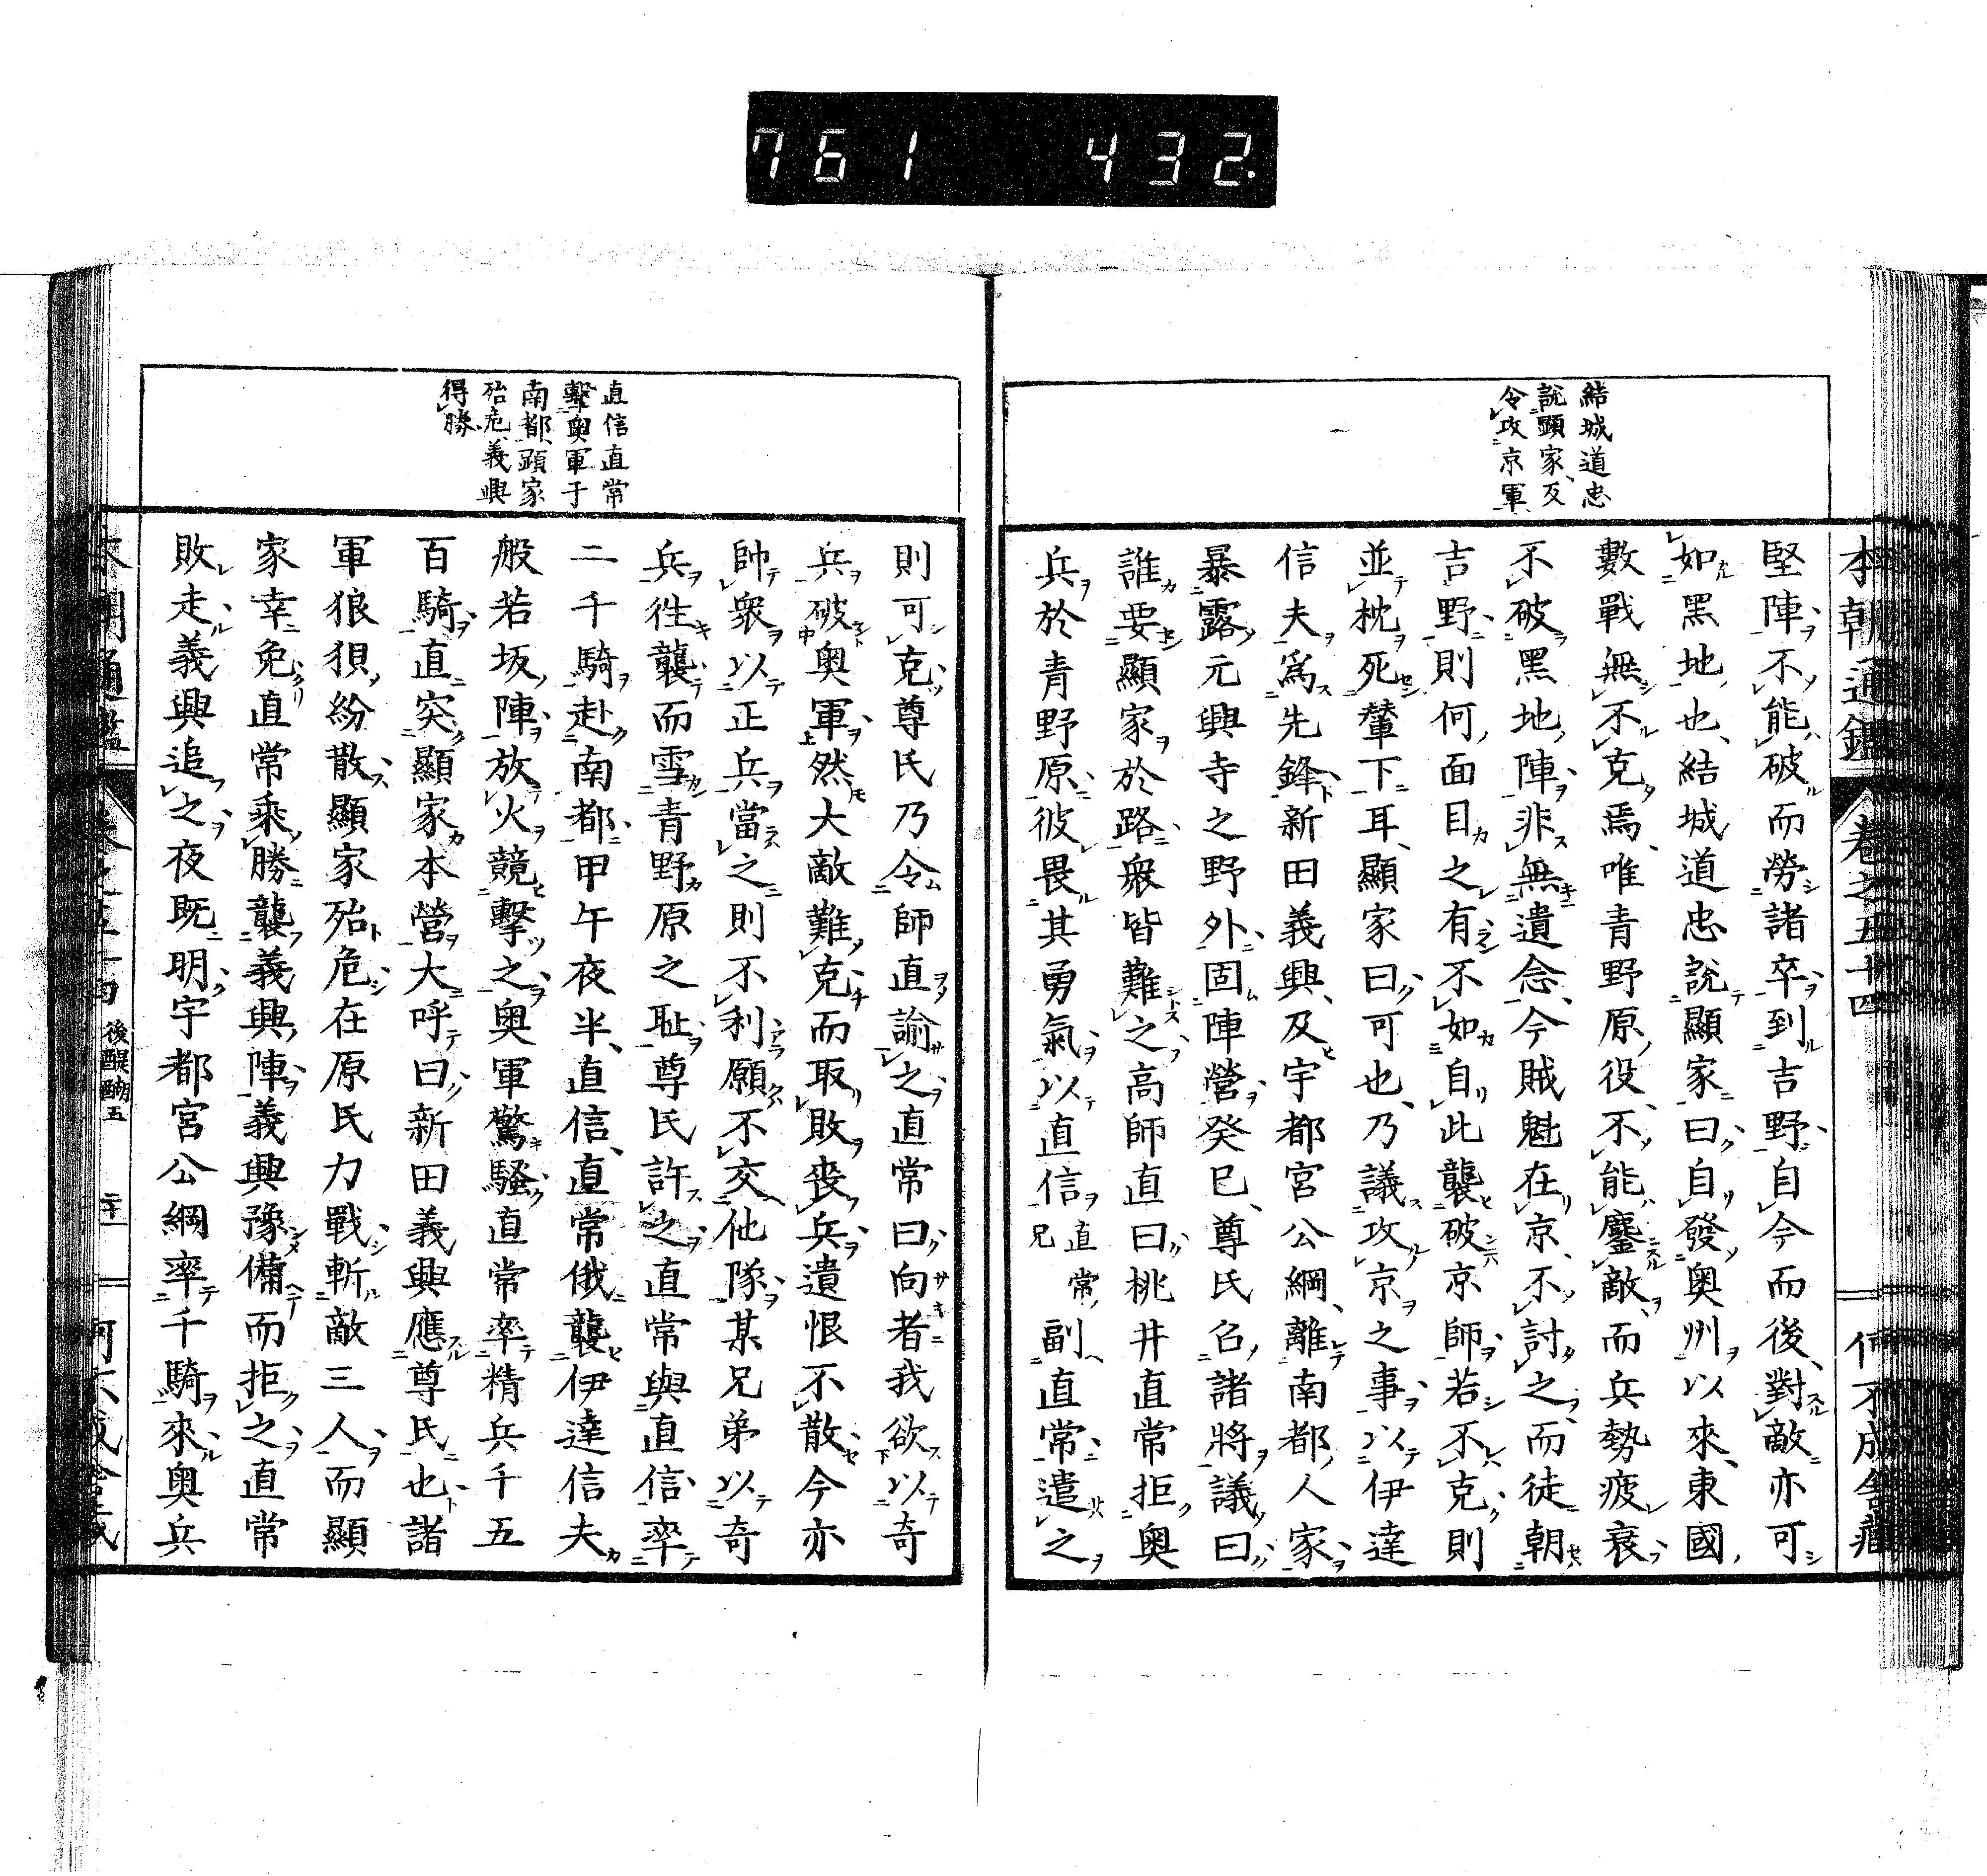 761 432.
本朝通鑑 卷之五十四 何不成舎藏
結城道忠
說顯家、反
令攻京軍
堅陣不能破而勞諸卒到吉野自今而後、對敵亦可
如黑地也、結城道忠說顯家曰自發奧州以來、東國
數戰無不克焉、唯青野原役、不能鏖敵而兵勢疲衰
不破黑地陣非無遺念、今賊魁在京、不討之而徒朝
吉野則何面目之有不如自此襲破京師若不克則
並枕死輦下耳、顯家曰可也、乃議攻京之事以伊達
信夫爲先鋒新田義興、及宇都宮公綱、離南都人家
暴露元興寺之野外固陣營癸巳、尊氏召諸將議曰
誰要顯家於路衆皆難之高師直曰桃井直常拒奧
兵於青野原彼畏其勇氣以直信直常兄副直常遣之
直信直常
擊奧軍于
南都、顯家
殆危、義興
得勝
則可克尊氏乃令師直諭之直常曰向者我欲以奇
兵破奧軍然大敵難克而取敗喪兵遺恨不散今亦
帥衆以正兵當之則不利願不交他隊某兄弟以奇
兵往襲而雪青野原之耻尊氏許之直常與直信率
二千騎赴南都甲午夜半、直信、直常俄襲伊達信夫
般若坂陣放火競擊之奧軍驚騷直常率精兵千五
百騎直突顯家本營大呼曰新田義興應尊氏也諸
軍狼狽紛散顯家殆危在原氏力戰斬敵三人而顯
家幸免直常乘勝襲義興陣義興豫備而拒之直常
敗走義興追之夜既明宇都宮公綱率千騎來奧兵
後醍醐五 二十一